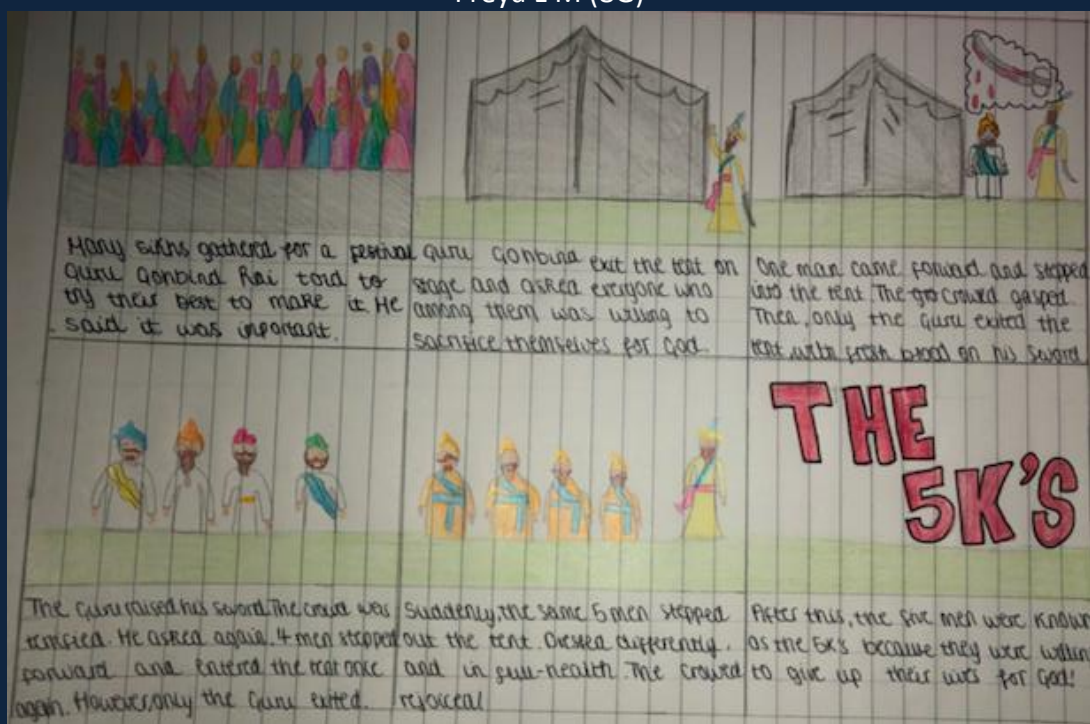 Many sikhs gathered for a festival
Guru Gonbind Rai told to
try their best to make it. He
said it was inportant.
Guru Gonbind exit the tent on
stage and asked everyone who
among them was willing to
sacrifice themselves for God.
One man came forward and stepped
into the tent. The crowd gasped.
Then, only the Guru exited the
tent with fresh blood on his sword
The Guru raised his sword. The crowd was
terrified. He asked again. 4 men stepped
forward and entered the tent once
again. However, only the Guru exited.
Suddenly, the same 5 men stepped
out the tent. Dressed differently,
and in full-health. The crowd
rejoiced!
THE
5K'S
After this, the five men were known
as the 5K's because they were willin
to give up their lives for God!